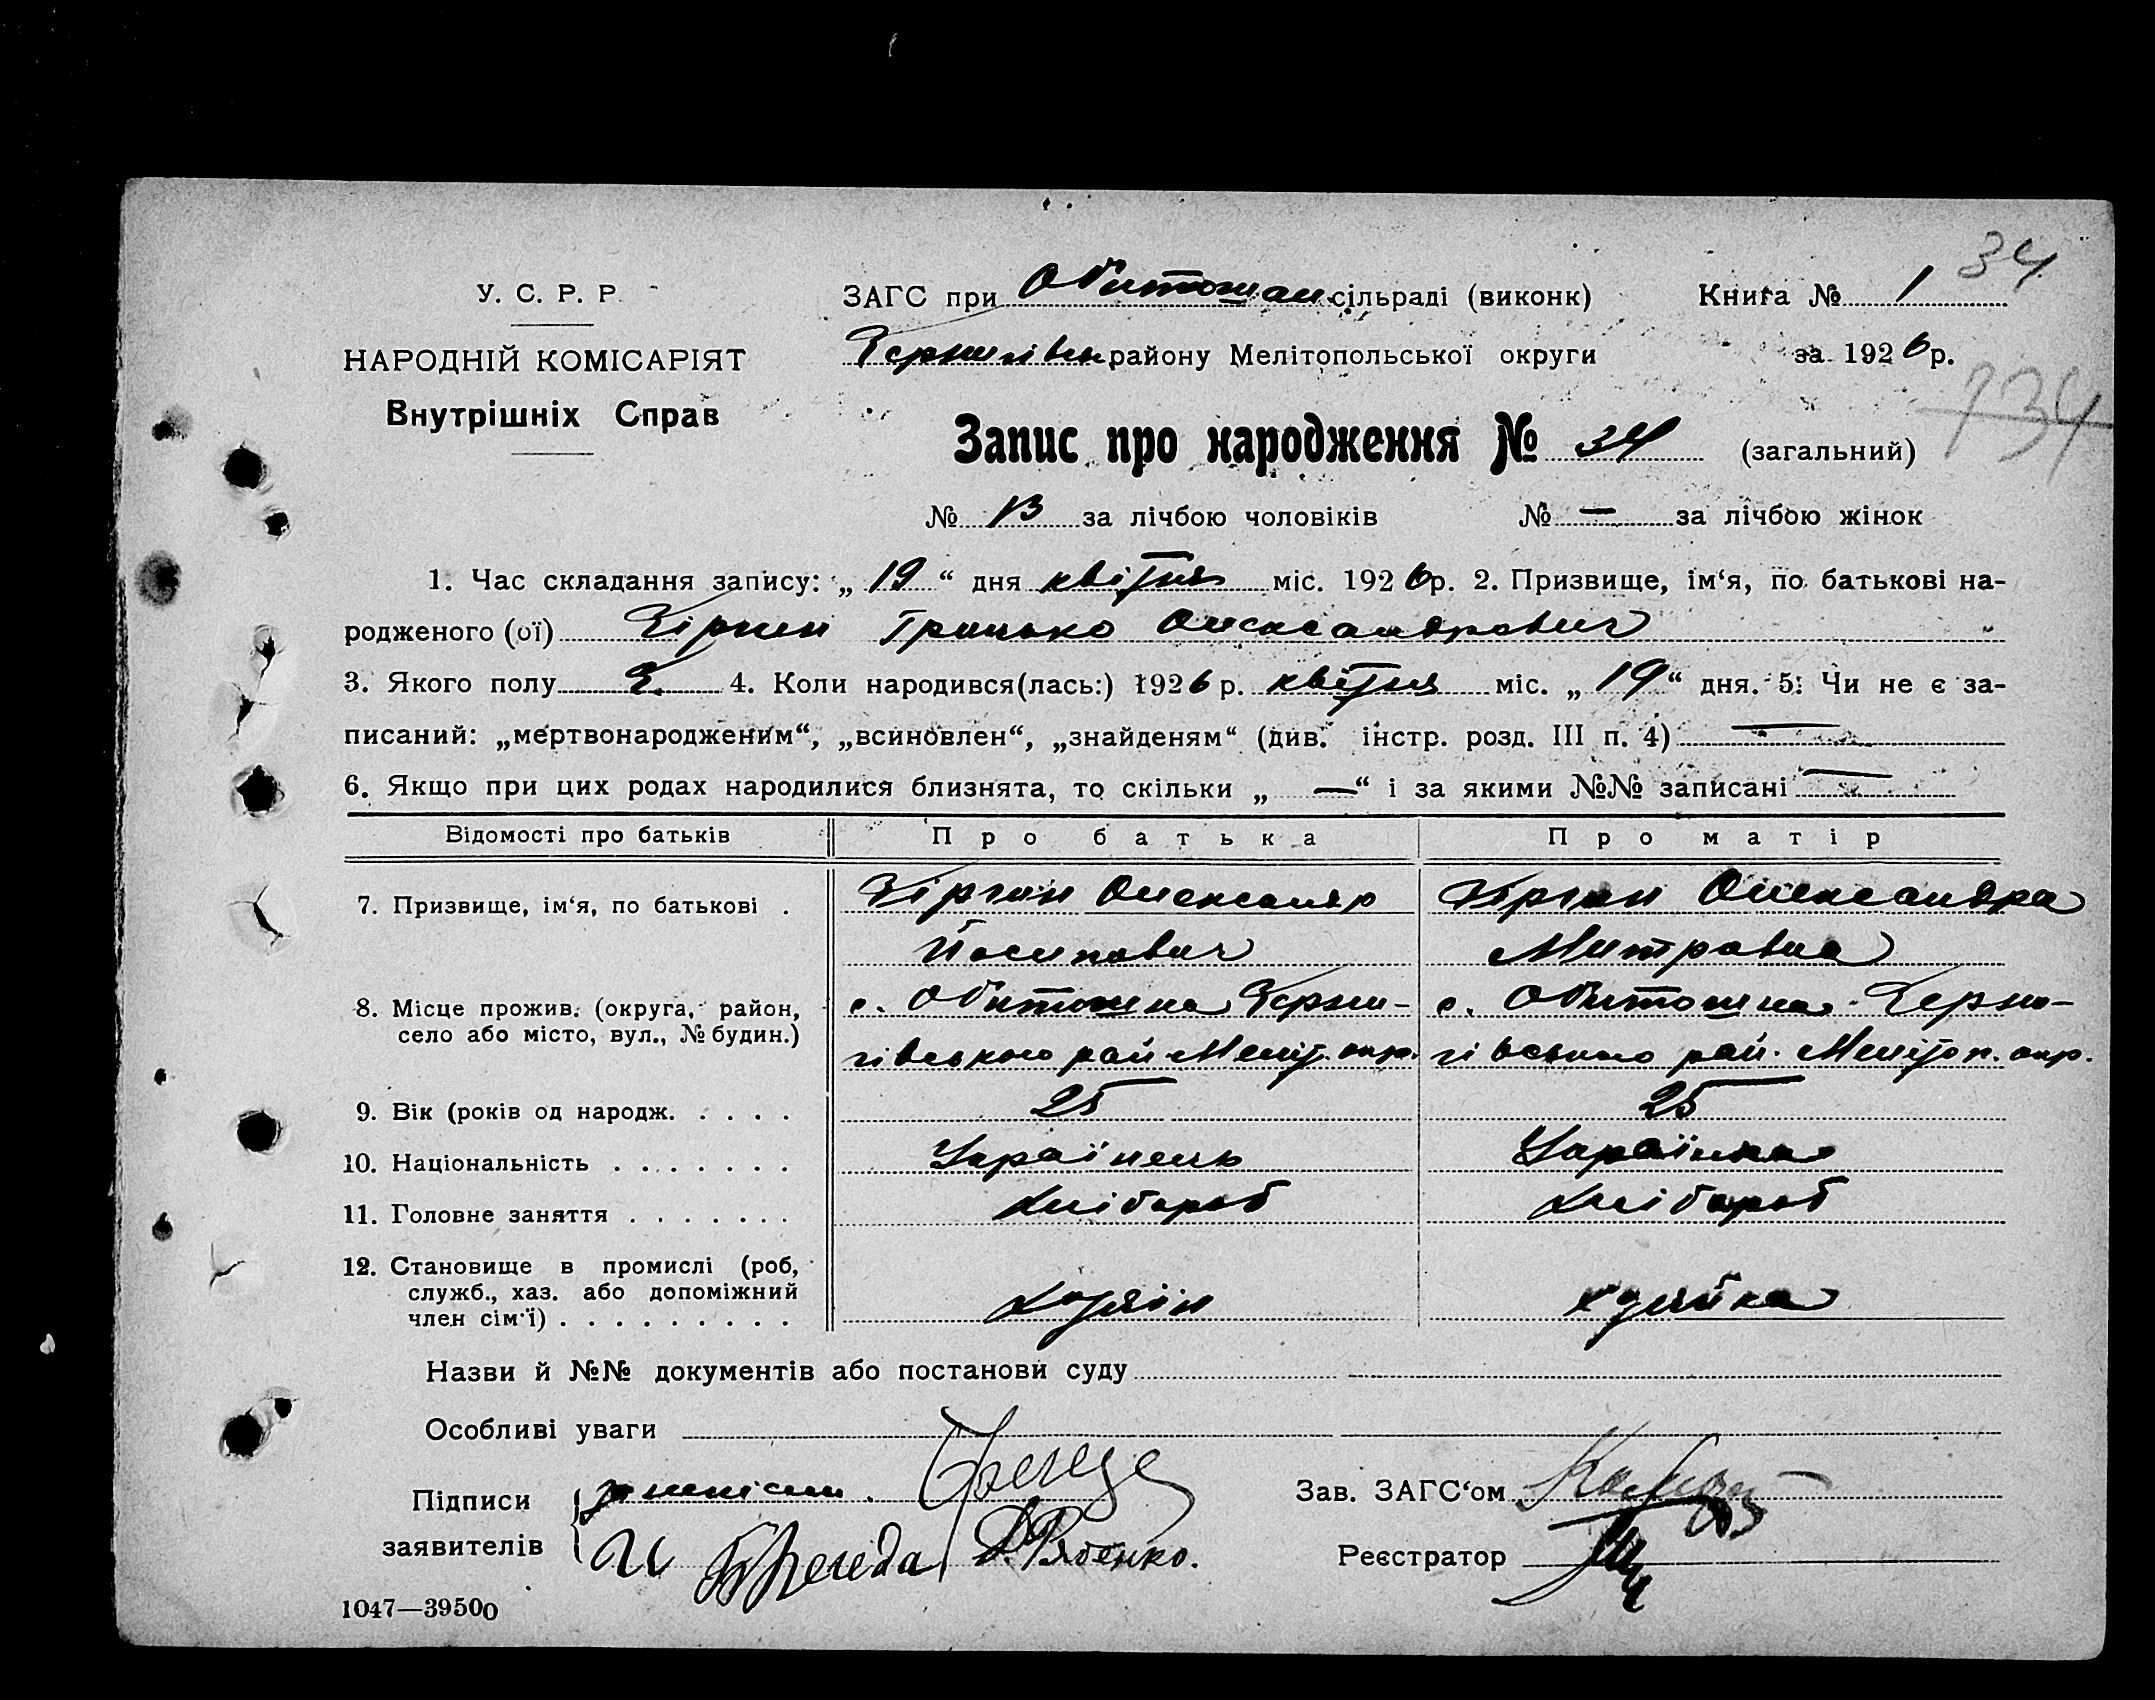 34
У. С. Р. Р.
НАРОДНІЙ КОМІСАРІЯТ
Внутрішніх Справ
ЗАГС при Обиточан. сільраді (виконк) Книга № 1
Чернигівськ району Мелітопольської округи за 1926 р.
134
Запис про народження № 34 (загальний)
№ 13 за лічбою чоловіків № — за лічбою жінок
1. Час складання запису: „ 19 “ дня квітня міс. 1926 р. 2. Призвище, ім‘я, по батькові на-
родженого (ої) Чіркин Грицько Олександрович
3. Якого полу Ч. 4. Коли народився(лась:) 1926 р. квітня міс. „ 19 “ дня. 5: Чи не є за-
писаний: „мертвонародженим“, „всиновлен“, „знайденям“ (див. інстр. розд. III п. 4) —
6. Якщо при цих родах народилися близнята, то скільки „ — “ і за якими №№ записані —
Відомості про батьків Про батька Про матір
7. Призвище, ім‘я, по батькові . Чіркин Олександр Чіркин Олександра
Йосипович Митровна
8. Місце прожив. (округа, район, с. Обиточна Черни- с. Обиточна Черни-
село або місто, вул., № будин.) гівського рай. Меліт. окр. гівського рай. Мелітоп. окр.
9. Вік (років од народж. . . . . 25 25
10. Національність . . . . . . . Українець Українка
11. Головне заняття . . . . . . . Хлібороб Хлібороб
12. Становище в промислі (роб,
служб., хаз. або допоміжний
член сім‘ї) . . . . . . . . . Хазяїн Хазяйка
Назви й №№ документів або постанови суду
Особливі уваги
Підписи
заявителів Д. Рябенко.
Зав. ЗАГС‘ом
Реєстратор
1047—39500